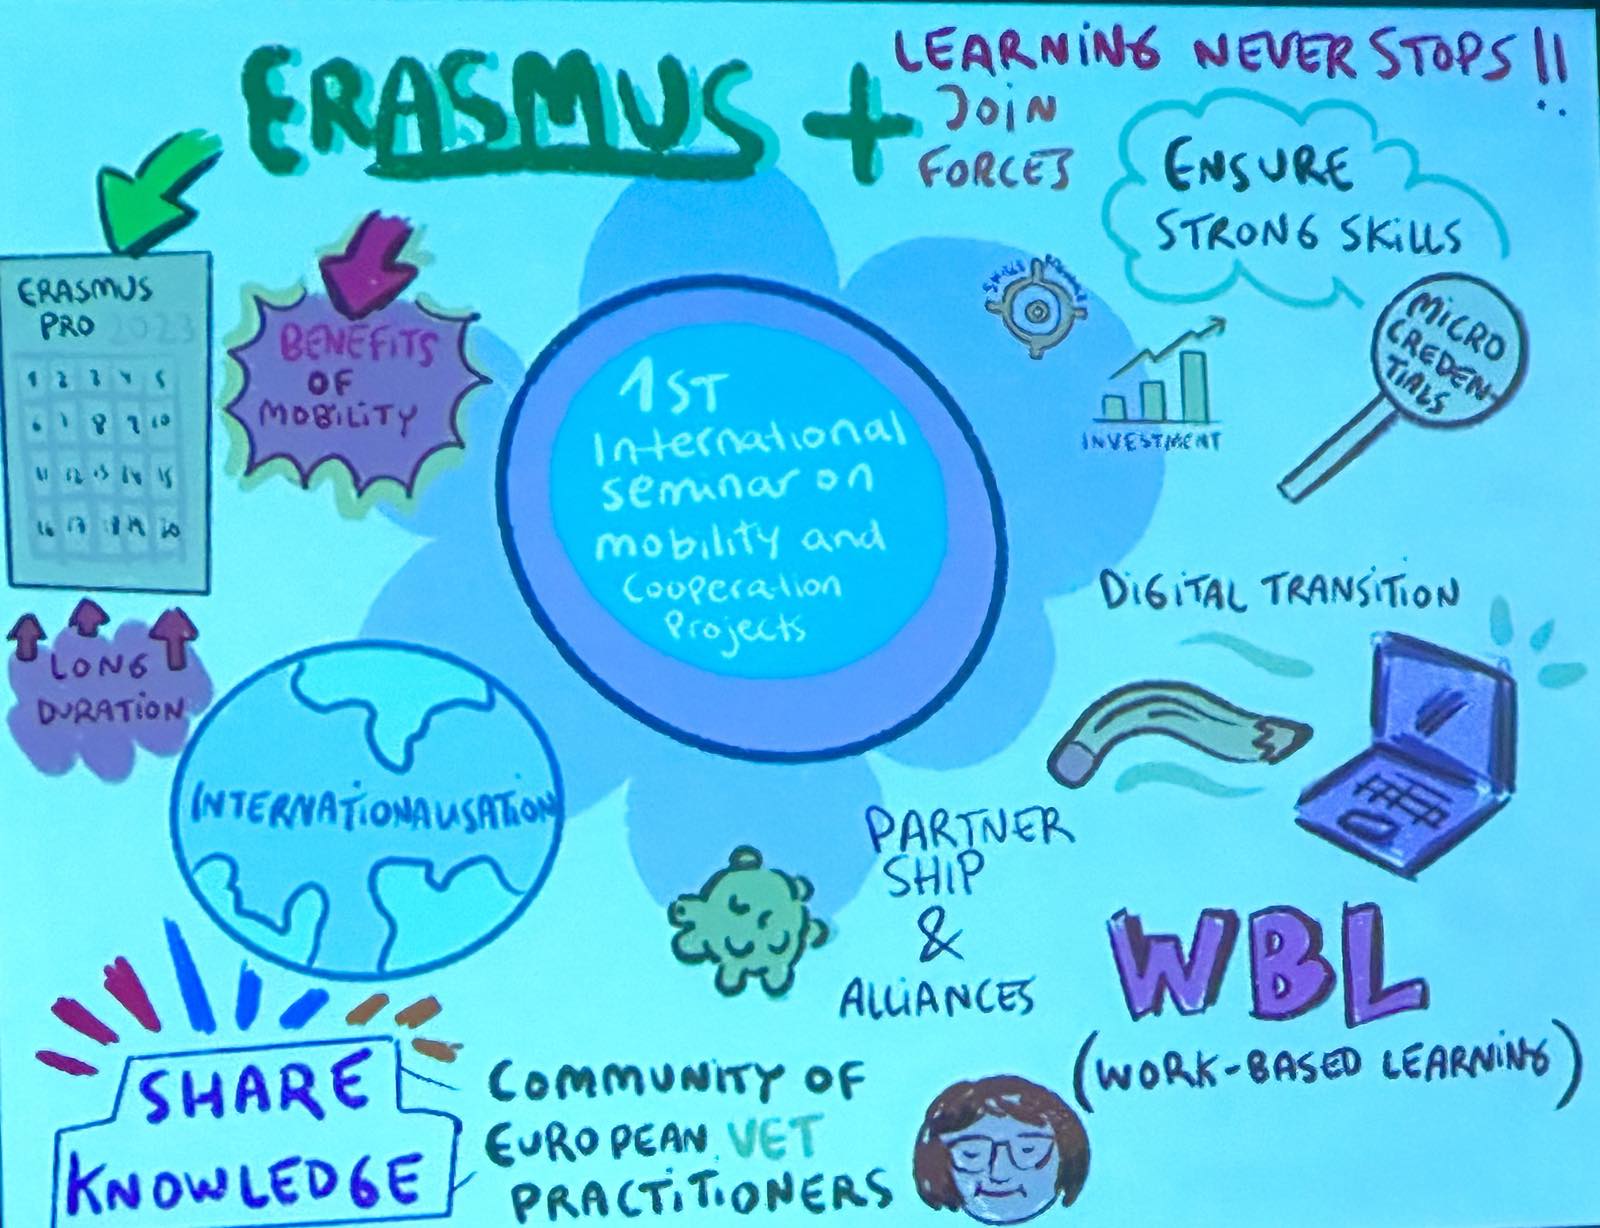 ERASMUS +
LEARNING NEVER STOPS !!
JOIN
FORCES
ENSURE
STRONG SKILLS
MICRO
CREDEN-
TIALS
SKILLS
INVESTMENT
ERASMUS
PRO 2023
1 2 3 4 5
6 7 8 9 10
11 12 13 14 15
16 17 18 19 20
BENEFITS
OF
MOBILITY
1ST
International
seminar on
mobility and
Cooperation
Projects
LONG
DURATION
INTERNATIONALISATION
DIGITAL TRANSITION
PARTNER
SHIP
&
ALLIANCES
WBL
(WORK-BASED LEARNING)
SHARE
KNOWLEDGE
COMMUNITY OF
EUROPEAN VET
PRACTITIONERS